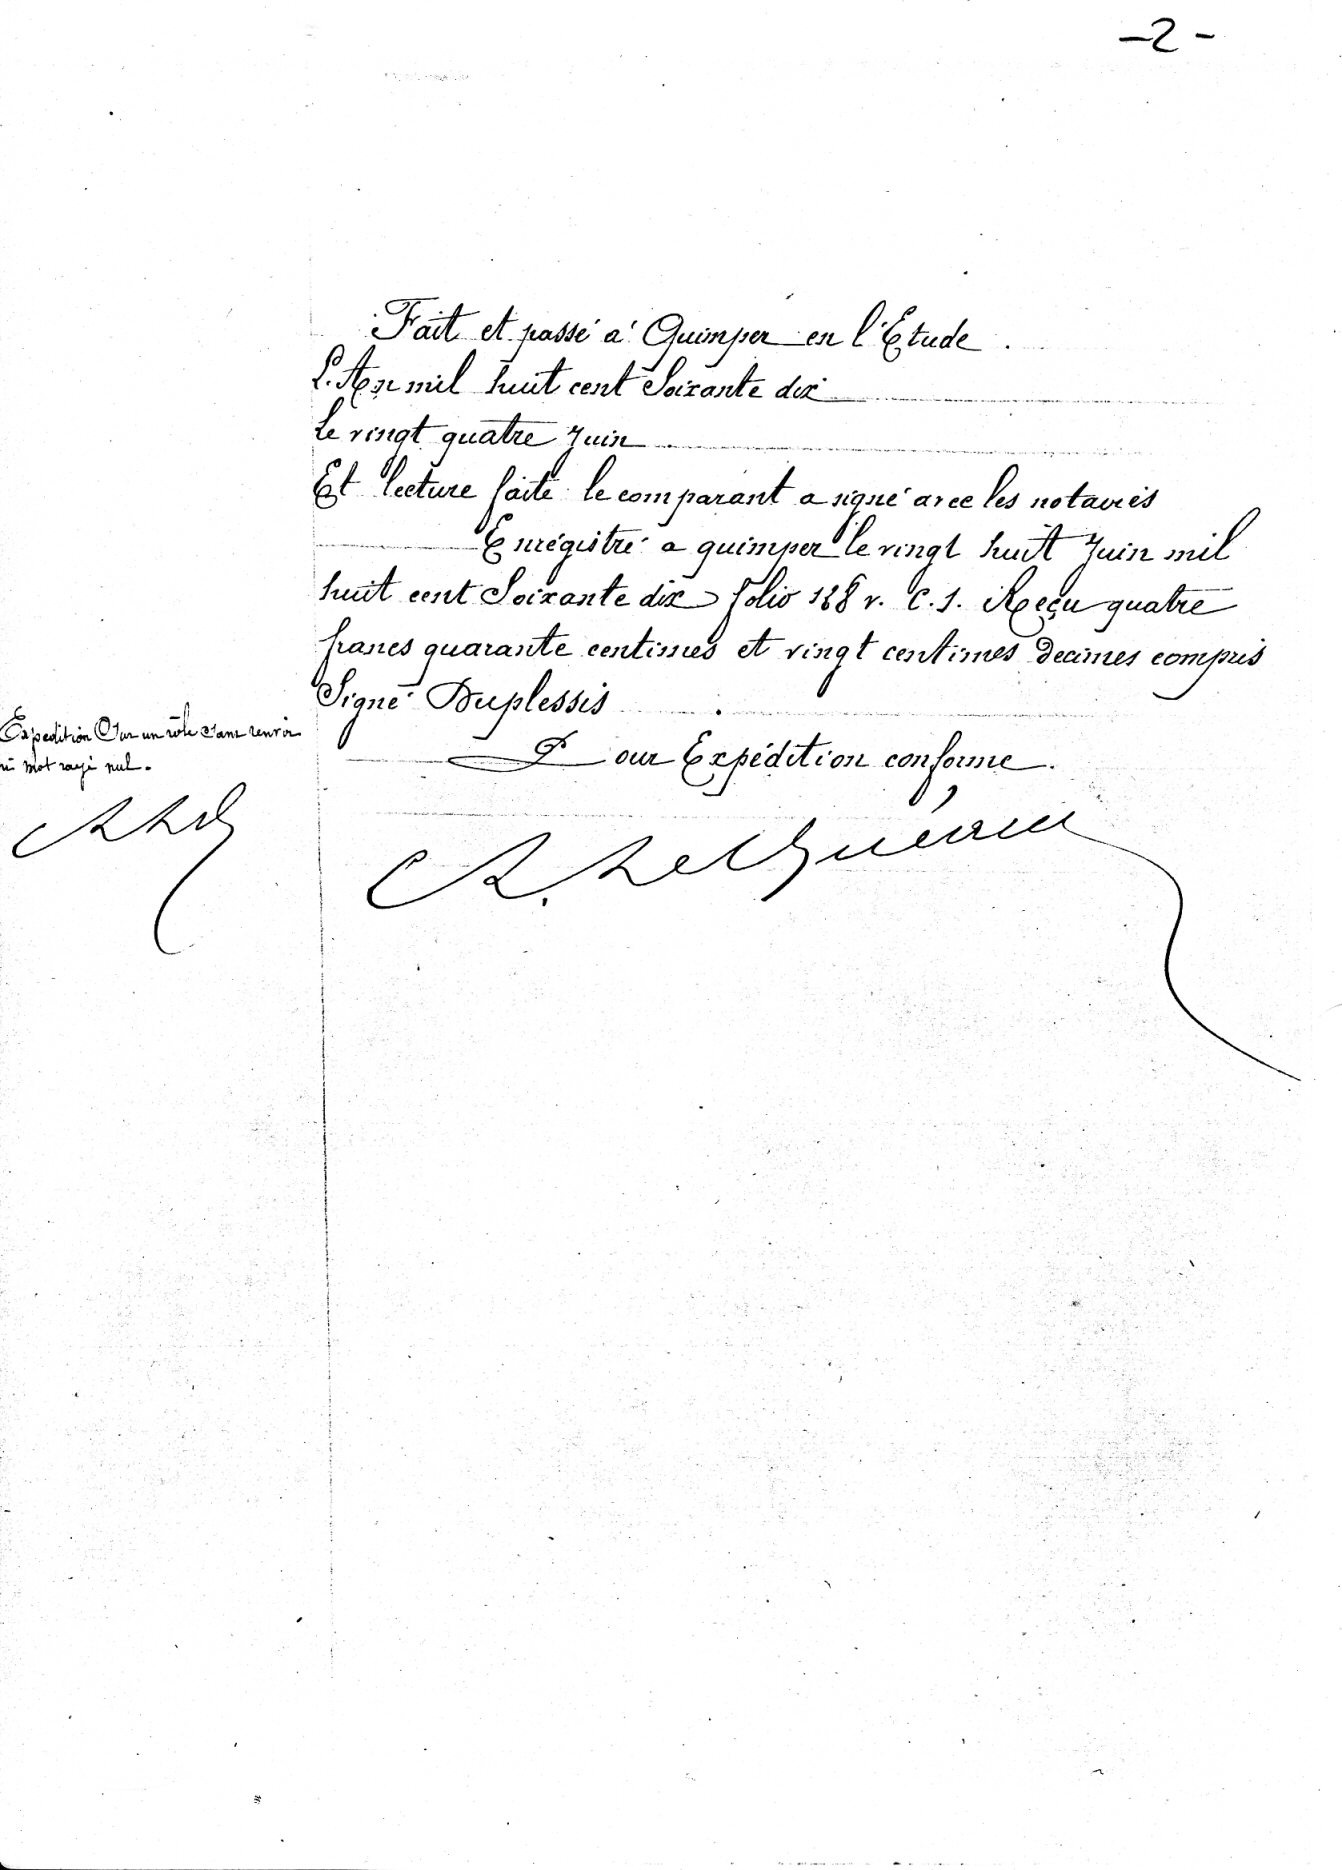 -2-
Fait et passé à Quimper en l'Etude.
L'An mil huit cent Soixante dix
le vingt quatre Juin
Et lecture faite le comparant a signé avec les notaires
Enrégistré a quimper le vingt huit Juin mil
huit cent Soixante dix folio v. C. 1. Reçu quatre
francs quarante centimes et vingt centimes decimes compris
Signé Duplessis
Expedition Sur un rôle sans renvoi
ni mot rayé nul.
Pour Expédition conforme.